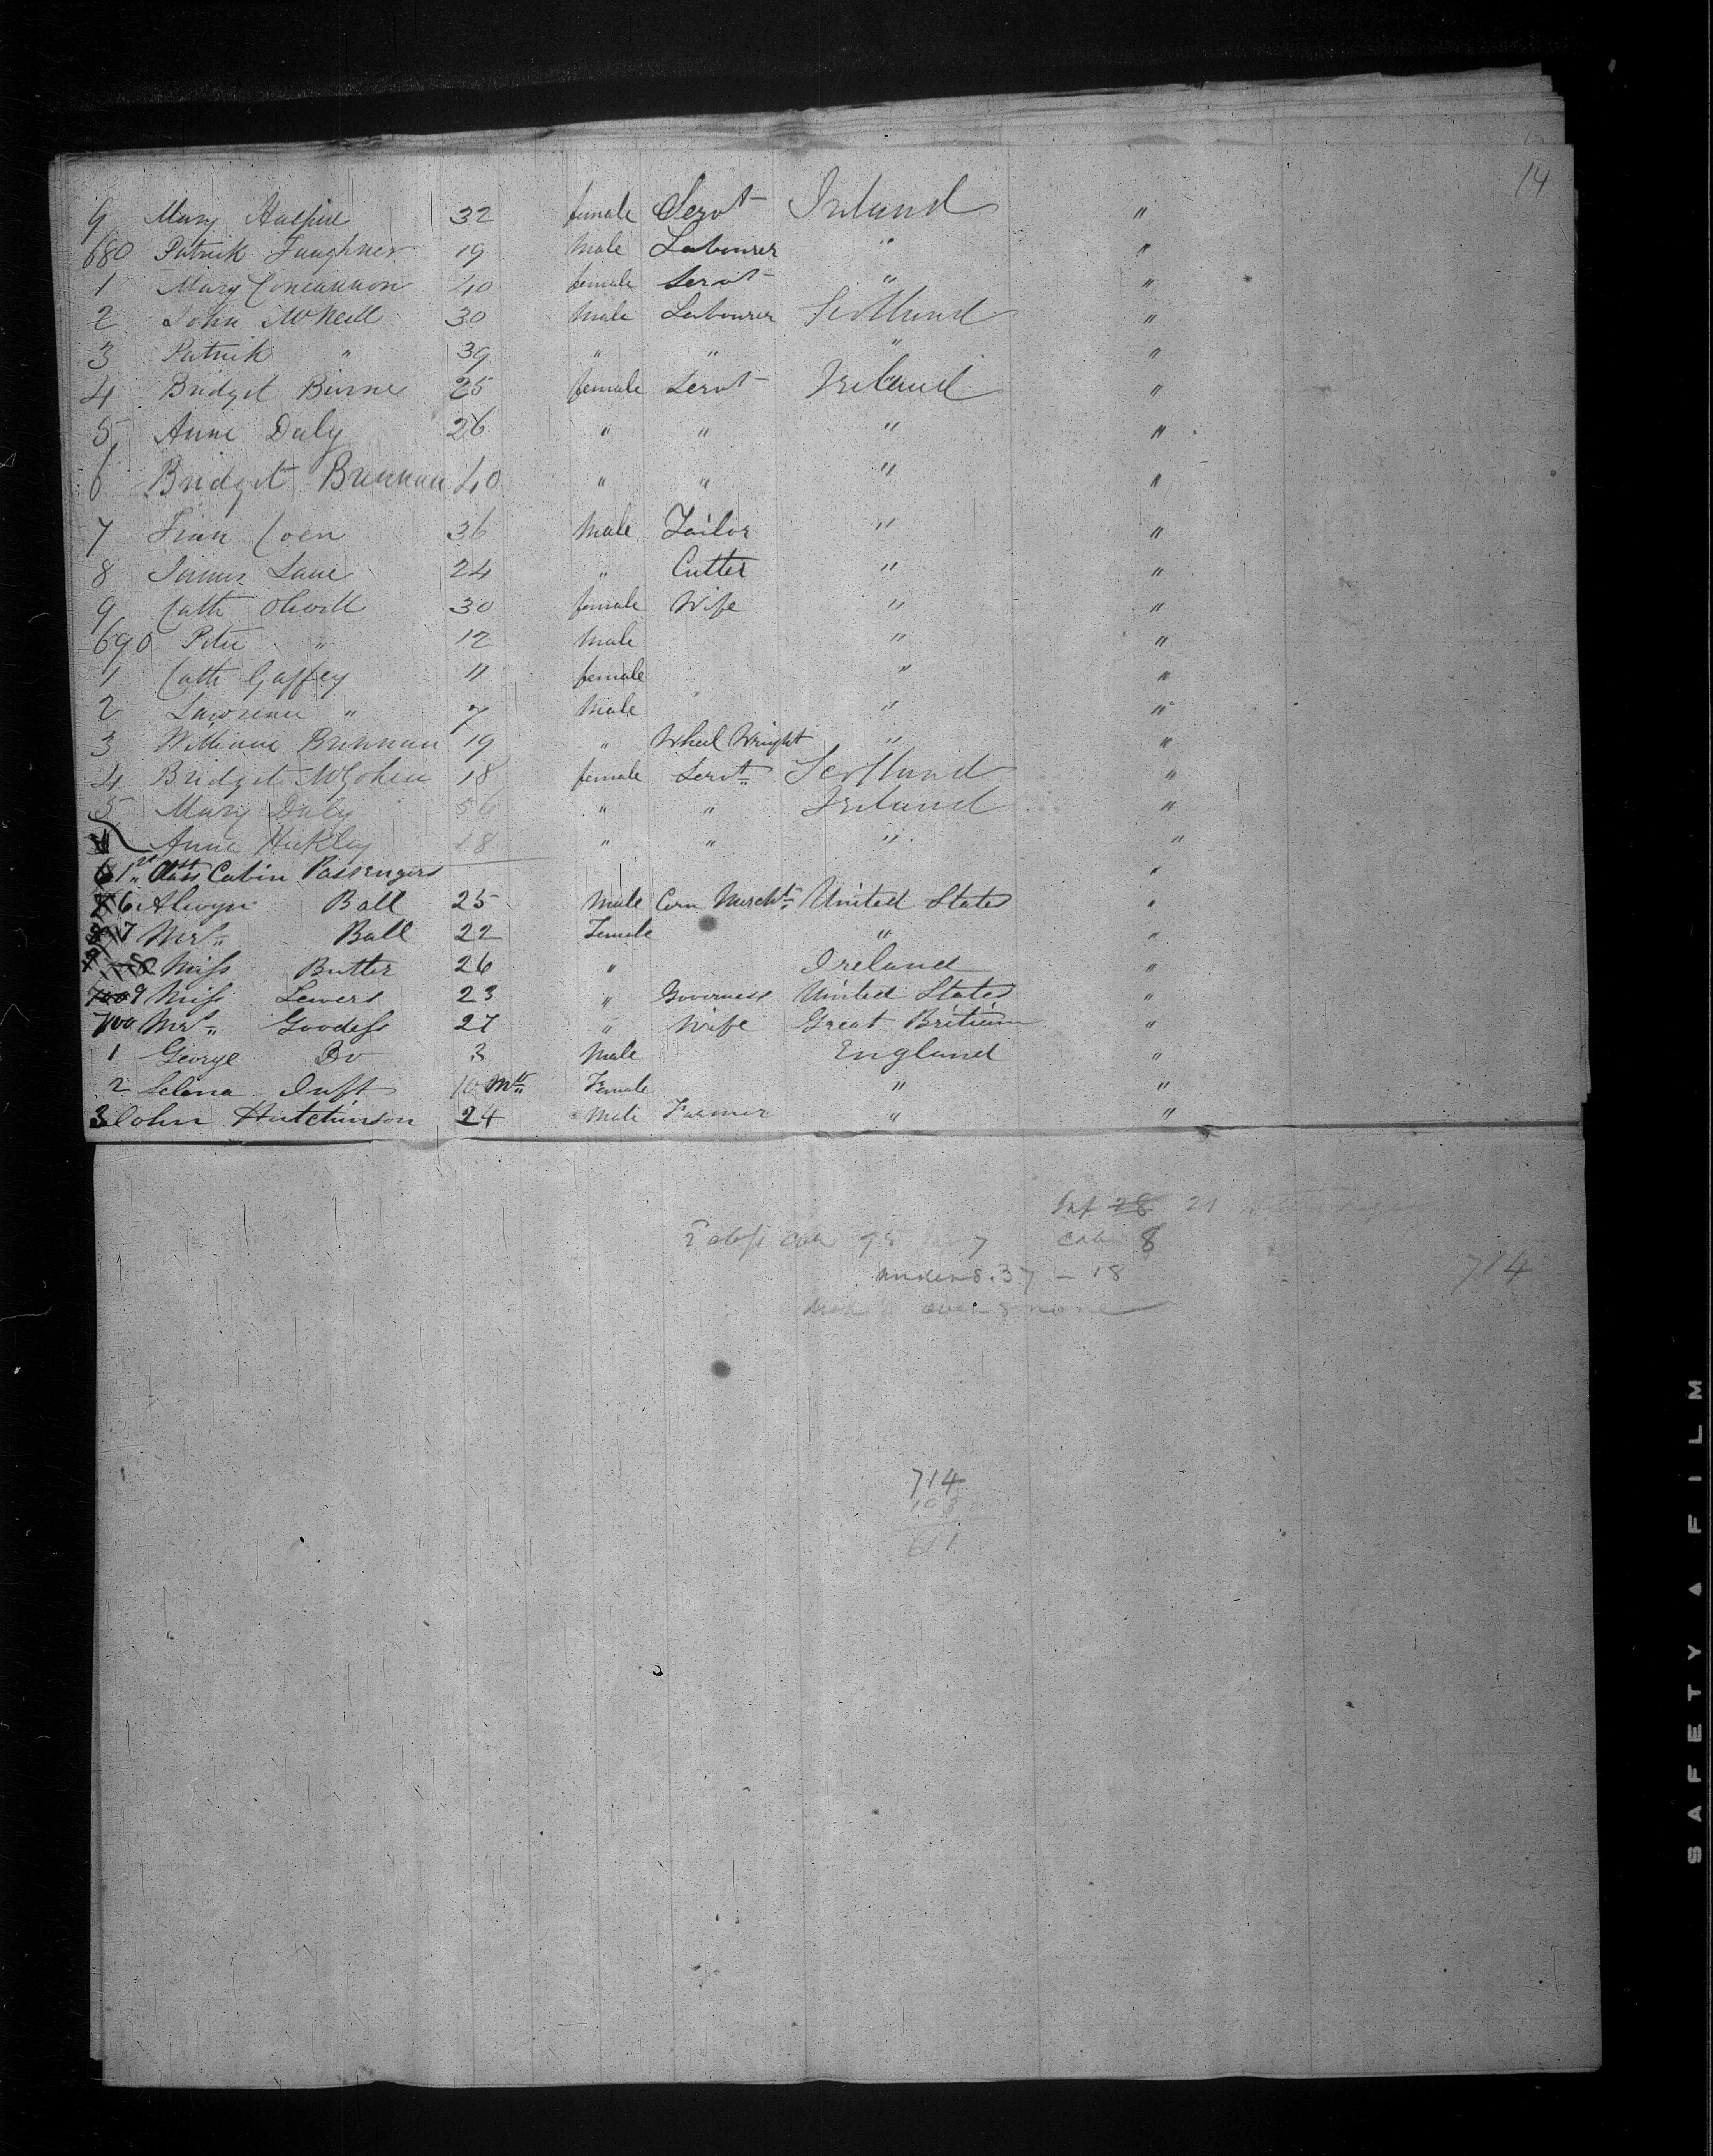 14
9 Mary Halpin 32 female Servt Ireland "
680 Patrick Faughner 19 Male Labourer " "
1 Mary Concannon 40 female Servt " "
2 John McNeill 30 Male Labourer Scotland "
3 Patrick " 39 " " " "
4 Bridget Birne 25 female Servt Ireland "
5 Anne Daly 26 " " " "
6 Bridget Brennan 40 " " " "
7 Coen 36 Male Tailor " "
8 James Lane 24 " Cutter " "
9 Cath 30 female Wife " "
690 Peter " 12 Male " "
1 Cath Gaffey 11 female " "
2 Lawrence " 7 Male " "
3 William Brennan 19 " Wheel Wright " "
4 Bridget 18 female Servt Scotland "
5 Mary Daly 56 " " Ireland "
Anne Hickley 18 " " " "
1st Class Cabin Passengers "
6 Alwyn Ball 25 Male Corn Mercht United States "
7 Mrs Ball 22 Female " "
8 Miss Butler 26 " Ireland "
9 Miss Lewers 23 " Governess United States "
700 Mrs Goodess 27 " Wife Great Britian "
1 George Do 3 Male England "
2 Selena Inft 10 Mts Female " "
3 John Hutchinson 24 Male Farmer " "
Inf 28 21
95 7 Cab 8
under 8. 37 - 18 714
over 8 none
714
103
611
SAFETY ▲ FILM